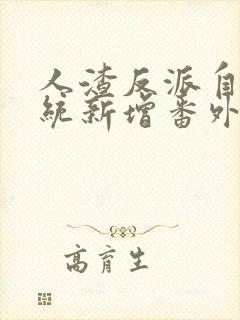 人渣反派自
统新增番外
高育生